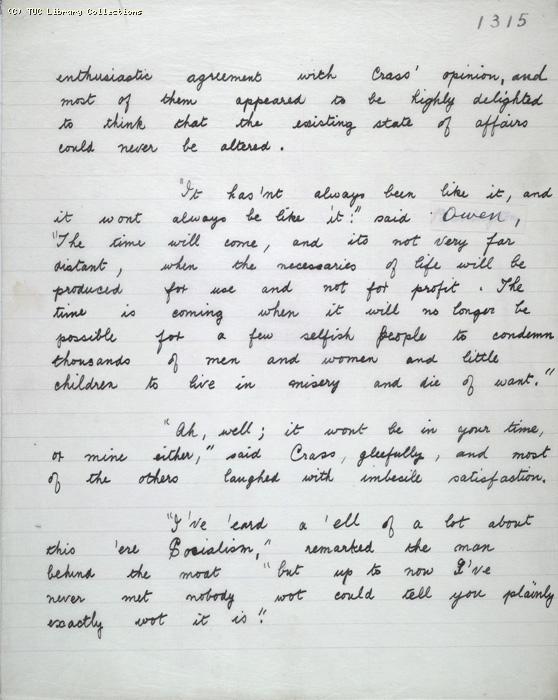 (C) TUC Library Collections
1315
enthusiastic agreement with Crass' opinion, and
most of them appeared to be highly delighted
to think that the existing state of affairs
could never be altered.
"It has'nt always been like it, and
it wont always be like it:" said Owen,
"The time will come, and its not very far
distant, when the necessaries of life will be
produced for use and not for profit. The
time is coming when it will no longer be
possible for a few selfish people to condemn
thousands of men and women and little
children to live in misery and die of want."
"Ah, well; it wont be in your time,
or mine either," said Crass, gleefully, and most
of the others laughed with imbecile satisfaction.
"I've 'eard a 'ell of a lot about
this 'ere Socialism," remarked the man
behind the moat "but up to now I've
never met nobody wot could tell you plainly
exactly wot it is".